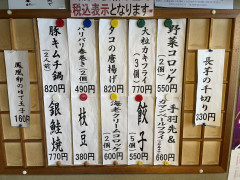 税込表示となります。
長芋の千切り
330円
野菜コロッケ
(2個)
550円
大粒カキフライ
(3個)
770円
タコの唐揚げ
820円
パリパリ春巻き
(2個)
490円
豚キムチ鍋
(2人前)
820円
手羽先&
660円
餃子
550円
海老クリームコロッケ
(2個)
600円
枝豆
380円
銀鮭焼
770円
鳳凰卵の味玉子
160円